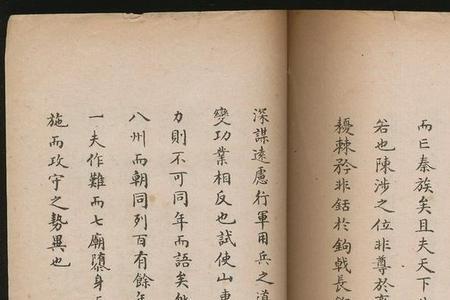 而亡秦族矣且夫天下
若也陳涉之位非尊於
耰棘矜非銛於鉤戟長
深謀遠慮行軍用兵之道
變功業相反也試使山東
力則不可同年而語矣
八州而朝同列百有餘年
一夫作難而七廟隳身
施而攻守之勢異也